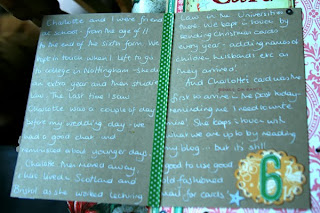 Charlotte and I were friends
at school - from the age of 11
to the end of the sixth form. We
kept in touch when I left to go
to college in Nottingham - she did
an extra year and then studied
Law. The last time I saw
Charlotte was a couple of days
before my wedding day - we
had a good chat and
reminisced about younger days.
Charlotte then moved away
& has lived in Scotland and
Bristol as she worked lecturing
Law in the Universities
there. We keep in touch by
sending Christmas cards
every year - adding names of
children husbands etc as
they arrived!
And Charlotte's card was the
first to arrive in the post today -
reminding me I need to write
mine! She keeps in touch with
what we are up to by reading
my blog... but it's still
good to use good
old-fashioned
mail for cards
6